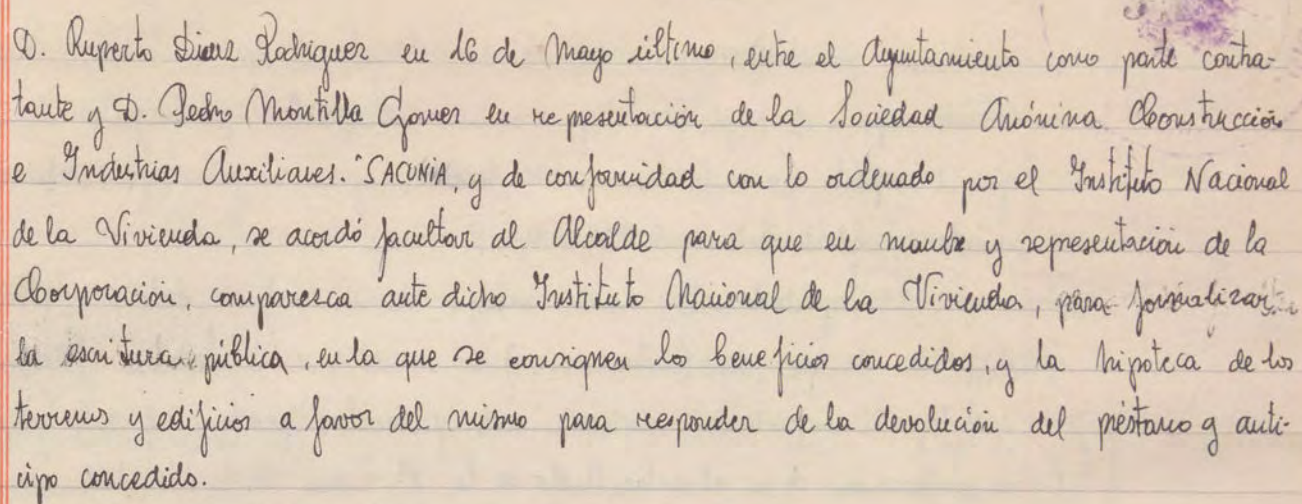 D. Ruperto Diaz Rodriguez en 16 de Mayo último, entre el Ayuntamiento como parte contra-
tante y D. Pedro Montilla Gomez en representación de la Sociedad Anónima Construcción
e Industrias Auxiliares. "SACONIA, y de conformidad con lo ordenado por el Instituto Nacional
de la Vivienda, se acordó facultar al Alcalde para que en nombre y representación de la
Corporación, comparezca ante dicho Instituto Nacional de la Vivienda, para formalizar
la escritura pública, en la que se consignen los beneficios concedidos, y la hipoteca de los
terrenos y edificios a favor del mismo para responder de la devolución del préstamo y anti-
cipo concedido.